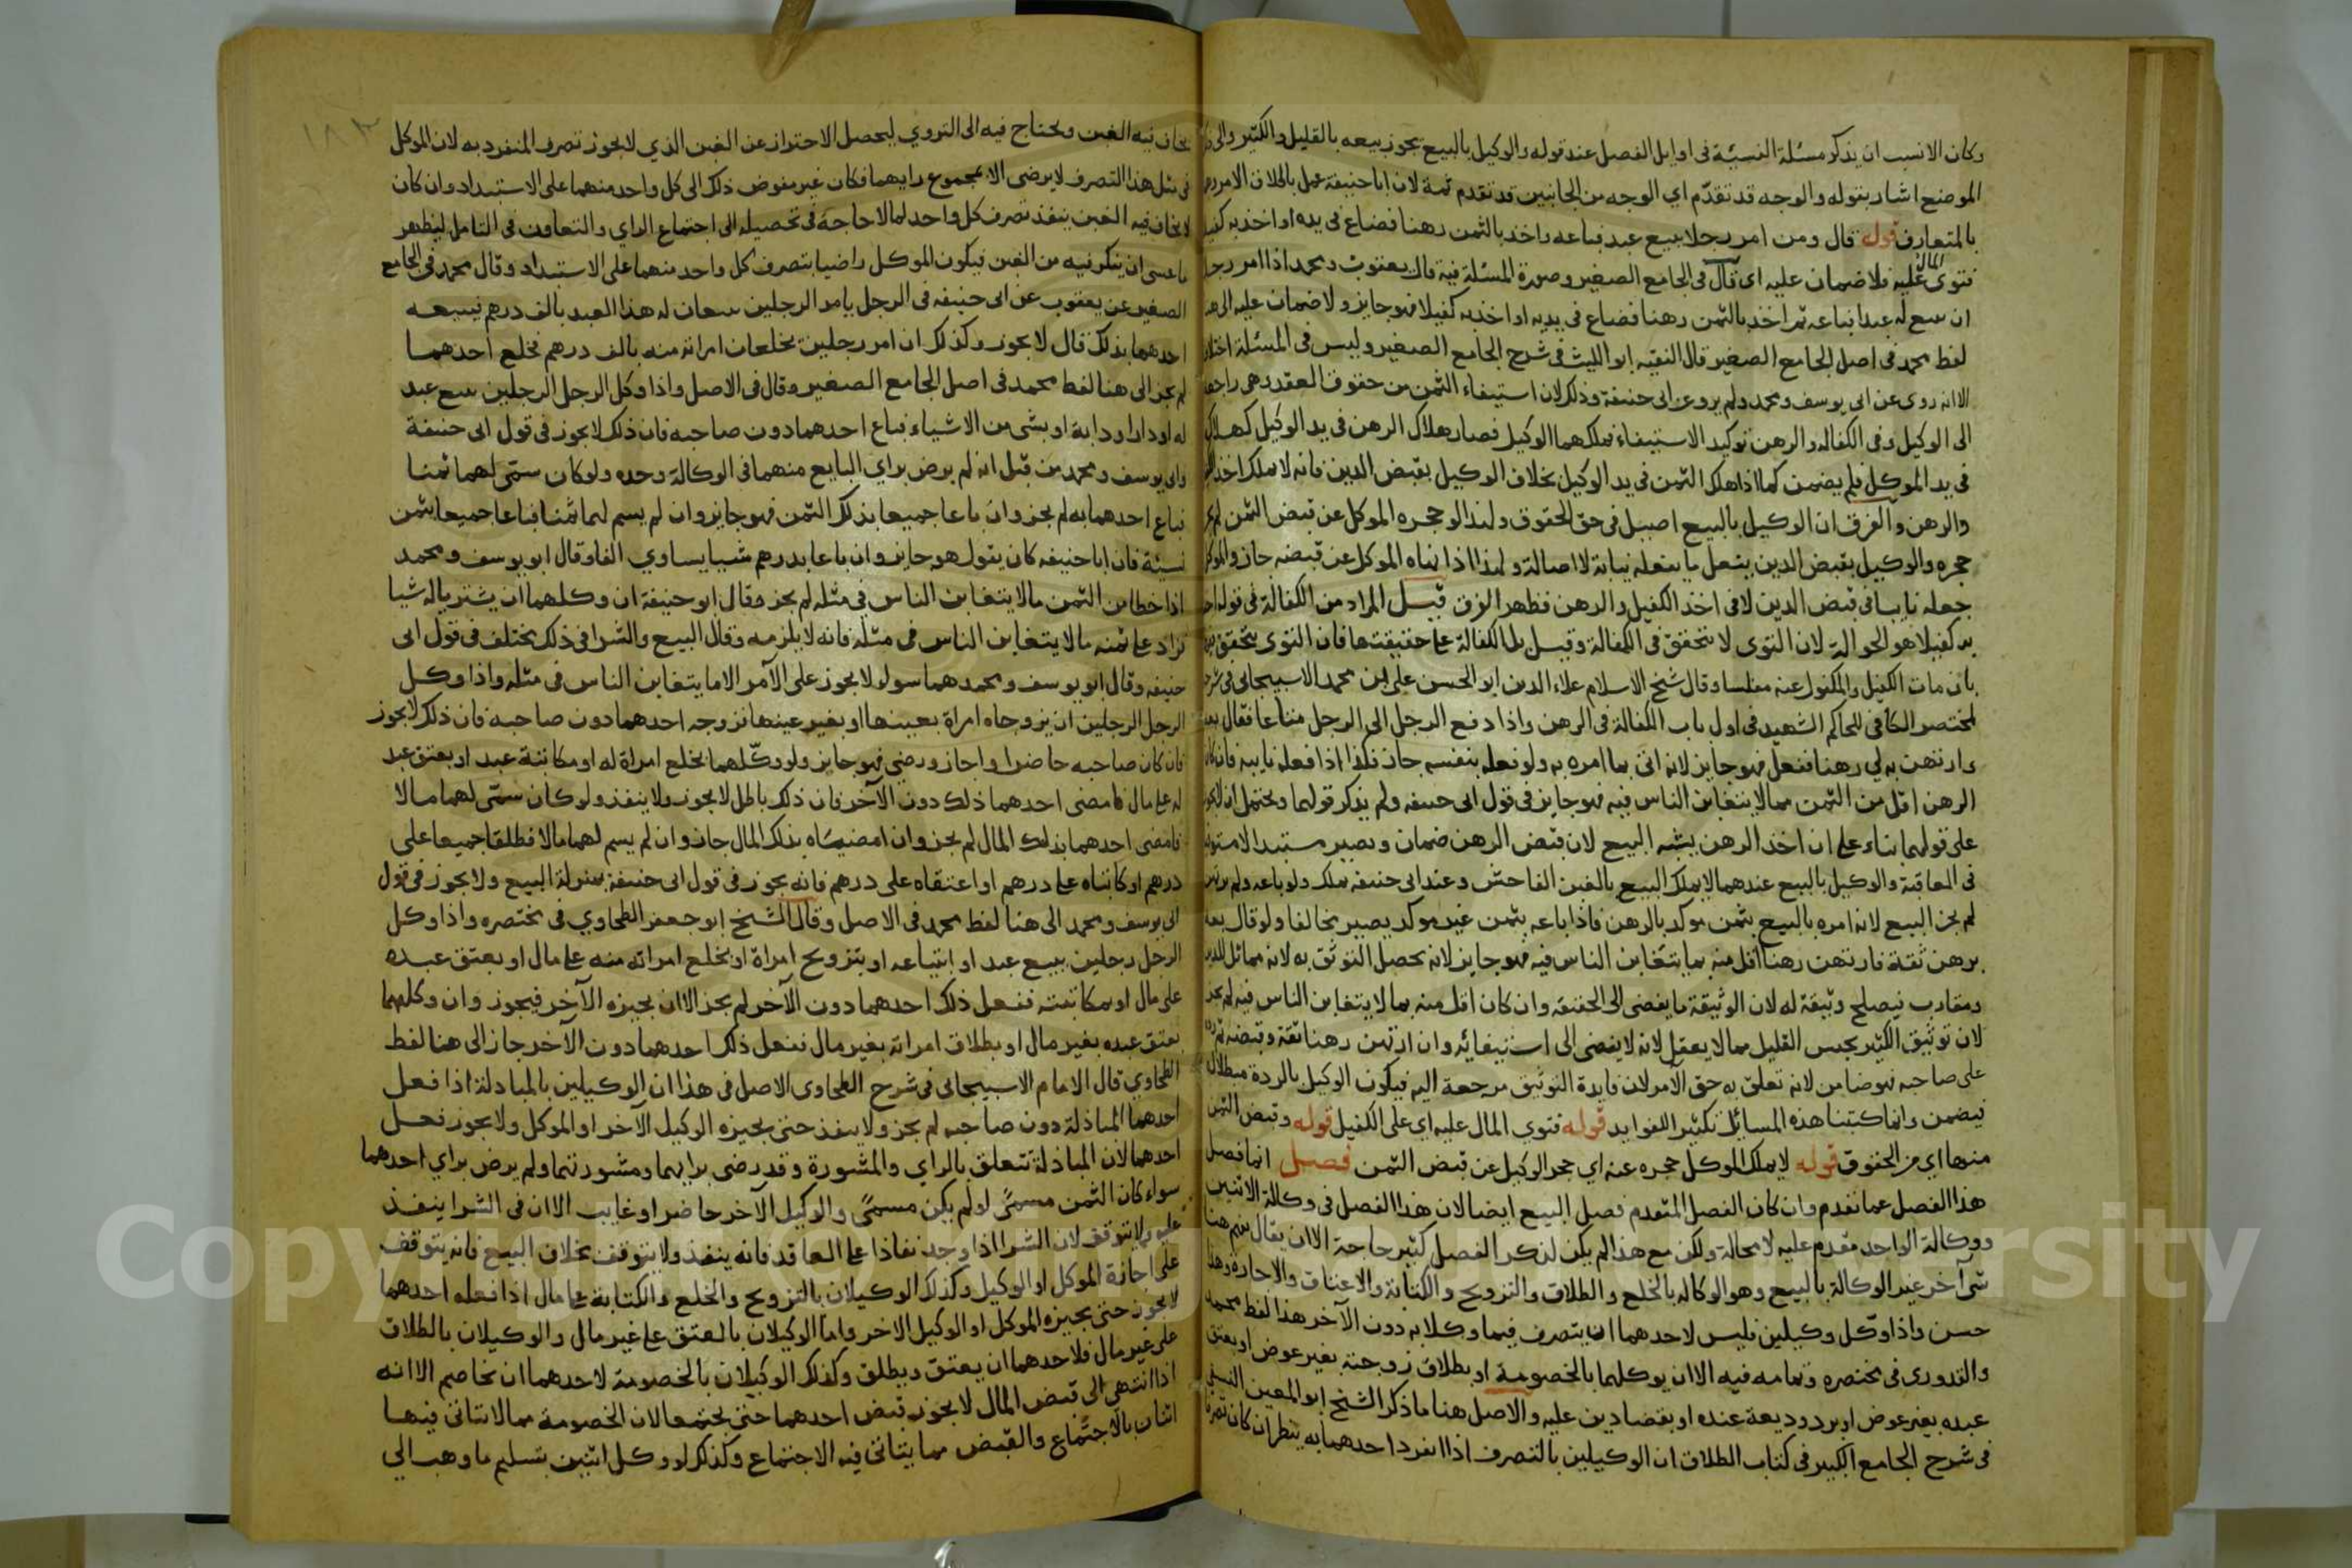 وكان الانسب ان يذكر مسئلة النسيئة في اوايل الفصل عند قوله والوكيل بالبيع يجوز بيعه بالقليل والكثير والى
الموضع اشار بقوله والوجه قد تقدّم اي الوجه من الجانبين قد تقدم ثمة لان ابا حنيفة عمل باطلاق الامر
بالمتعارف قوله قال ومن امر رجلا ببيع عبد فباعه واخذ بالثمن رهنا فضاع في يده او اخذ به
فتوى المال عليه فلا ضمان عليه اي قال في الجامع الصغير وصورة المسئلة فيه قال يعقوب ومحمد اذا امر رجل
ان يبيع له عبدا فباعه ثم اخذ بالثمن رهنا فضاع في يديه او اخذ به كفيلا فهو جايز ولا ضمان عليه الى هنا
لفظ محمد في اصل الجامع الصغير قال الفقيه ابو الليث في شرح الجامع الصغير وليس في المسئلة
الا انه روى عن ابى يوسف ومحمد ولم يرو عن ابى حنيفة وذلك لان استيفاء الثمن من حقوق العقد وهي
الى الوكيل وفى الكفاله والرهن توكيد الاستيفاء فملكهما الوكيل فصار هلاك الرهن في يد الوكيل كهلاك
في يد الموكل فلم يضمن كما اذا هلك الثمن في يد الوكيل بخلاف الوكيل بقبض الدين فانه لا يملك اخذ
والرهن والفرق ان الوكيل بالبيع اصيل في حق الحقوق ولهذا لو حجره الموكل عن قبض الثمن لم
حجره والوكيل بقبض الدين يفعل ما يفعله نيابة لا اصالة ولهذا اذا نهاه الموكل عن قبضه جاز والموكل
جعله نايبا في قبض الدين لا في اخذ الكفيل والرهن فظهر الفرق قيل المراد من الكفالة في قوله
به كفيلا هو الحوالة لان التوى لا يتحقق في الكفالة وقيل بل الكفالة على حقيقتها فان التوى يتحقق
بان مات الكفيل والمكفول عنه مفلسا وقال شيخ الاسلام علاء الدين ابو الحسن على بن محمد الاسبيجابى في
مختصر الكافي للحاكم الشهيد في اول باب الكفالة في الرهن واذا دفع الرجل الى الرجل متاعا فقال
وارتهن به لي رهنا ففعل فهو جايز لانه اتى بما امره به ولو فعله بنفسه جاز فكذا اذا فعله نايبه فان كان
الرهن اقل من الثمن مما لا يتغابن الناس فيه فهو جايز في قول ابى حنيفه ولم يذكر قولهما ويحتمل ان
على قولهما بناء على ان اخذ الرهن يشبه البيع لان قبض الرهن ضمان ويصير
في العاقبة والوكيل بالبيع عندهما لا يملك البيع بالغبن الفاحش وعند ابى حنيفه يملك ولو باعه ولم
لم يجز البيع لانه امره بالبيع بثمن موكد بالرهن فاذا باعه بثمن غير موكد يصير مخالفا ولو قال بعه
برهن ثقة فارتهن رهنا اقل منه بما يتغابن الناس فيه فهو جايز لانه يحصل التوثق به لانه مماثل
ومقارب فيصلح وثيقة له لان الوثيقة ما يفضى الى الحقيقه وان كان اقل منه بما لا يتغابن الناس فيه لم يجز
لان توثيق الكثير بحبس القليل مما لا يعقل لانه لا يفضى الى استيفائه وان ارتهن رهنا ثقة وقبضه ثم
على صاحبه فهو ضامن لانه تعلق به حق الآمر لان فايدة التوثيق مرجعة اليه فيكون الوكيل بالرده مبطلا
فيضمن وانما كتبنا هذه المسائل تكثيرا للفوايد قوله فتوي المال عليه اي على الكفيل قوله وقبض الثمن
منها اي من الحقوق قوله لا يملك الموكل حجره عنه اي حجر الوكيل عن قبض الثمن فصل انما فصل
هذا الفصل عما تقدم وان كان الفصل المتقدم فصل البيع ايضا لان هذا الفصل في وكالة الاثنين
ووكالة الواحد مقدم عليه لا محالة ولكن مع هذا لم يكن لذكر الفصل كثير حاجة الا ان يقال
شى آخر غير الوكالة بالبيع وهو الوكاله بالخلع والطلاق والتزويج والكتابة والاعتاق والاجاره وهذا
حسن واذا وكّل وكيلين فليس لاحدهما ان يتصرف فيما وكلا به دون الآخر هذا لفظ محمد
والقدورى في مختصره وتمامه فيه الا ان يوكلهما بالخصومة او بطلاق زوجته بغير عوض او بعتق
عبده بغير عوض او برد وديعة عنده او بقضا دين عليه والاصل هنا ما ذكر الشيخ ابو المعين النسفى
في شرح الجامع الكبير في كتاب الطلاق ان الوكيلين بالتصرف اذا انفرد احدهما به ينظر ان كان
يخاف فيه الغبن ويحتاج فيه الى التروي ليحصل الاحتراز عن الغبن الذي لا يجوز تصرف المنفرد به لان الموكل
في مثل هذا التصرف لا يرضى الا بمجموع رايهما فكان غير مفوض ذلك الى كل واحد منهما على الاستبداد وان كان
لا يخاف فيه الغبن ينفذ تصرف كل واحد لما لا حاجة في تحصيله الى اجتماع الراي والتعاون في التامل ليظهر
ما عسى ان ينكر فيه من الغبن فيكون الموكل راضيا بتصرف كل واحد منهما على الاستبداد وقال محمد في الجامع
الصغير عن يعقوب عن ابى حنيفه في الرجل يامر الرجلين يبيعان له هذا العبد بالف درهم فيبيعه
احدهما بذلك قال لا يجوز وكذلك ان امر رجلين يخلعان امراته منه بالف درهم فخلع احدهما
لم يجز الى هنا لفظ محمد في اصل الجامع الصغير وقال في الاصل واذا وكل الرجل الرجلين ببيع عبد
له او دار او دابة او بشى من الاشياء فباع احدهما دون صاحبه فان ذلك لا يجوز في قول ابى حنيفة
وابى يوسف ومحمد من قبل انه لم يرض براي البايع منهما في الوكالة وحده ولو كان سمّى لهما ثمنا
فباع احدهما به لم يجز وان باعا جميعا بذلك الثمن فهو جايز وان لم يسم لهما ثمنا فباعا جميعا بثمن
نسيئة فان ابا حنيفه كان يقول هو جايز وان باعا بدرهم شيا يساوي الفا وقال ابو يوسف ومحمد
اذا حطا من الثمن مالا يتغابن الناس في مثله لم يجز وقال ابو حنيفة ان وكلهما ان يشتريا له شيا
فزاد على ثمنه مالا يتغابن الناس في مثله فانه لا يلزمه وقال البيع والشرا في ذلك يختلف في قول ابى
حنيفه وقال ابو يوسف ومحمد هما سواء لا يجوز على الآمر الا ما يتغابن الناس في مثله واذا وكل
الرجل الرجلين ان يزوجاه امراة بعينها او بغير عينها فزوجه احدهما دون صاحبه فان ذلك لا يجوز
فان كان صاحبه حاضرا واجاز ورضى فهو جايز ولو وكّلهما بخلع امراة له او مكاتبة عبد او بعتق عبد
له على مال فامضى احدهما ذلك دون الآخر فان ذلك باطل لا يجوز ولا ينفذ ولو كان سمّى لهما مالا
فامضى احدهما بذلك المال لم يجز وان امضياه بذلك المال جاز وان لم يسم لهما مالا فطلقا جميعا على
درهم او كاتباه على درهم او اعتقاه على درهم فانه يجوز في قول ابى حنيفة بمنزلة البيع ولا يجوز في قول
ابى يوسف ومحمد الى هنا لفظ محمد في الاصل وقال الشيخ ابو جعفر الطحاوي في مختصره واذا وكل
الرجل رجلين ببيع عبد او ابتياعه او بتزويج امراة او بخلع امراته منه على مال او بعتق عبده
على مال او بمكاتبته ففعل ذلك احدهما دون الآخر لم يجز الا ان يجيزه الآخر فيجوز وان وكلهما
بعتق عبده بغير مال او بطلاق امراته بغير مال ففعل ذلك احدهما دون الآخر جاز الى هنا لفظ
الطحاوي قال الامام الاسبيجابى في شرح الطحاوى الاصل في هذا ان الوكيلين بالمبادلة اذا فعل
احدهما المبادلة دون صاحبه لم يجز ولا ينفذ حتى يجيزه الوكيل الآخر او الموكل ولا يجوز فعل
احدهما لان المبادلة تتعلق بالراي والمشورة وقد رضى برايهما ومشورتهما ولم يرض براي احدهما
سواء كان الثمن مسمىً او لم يكن مسمىً والوكيل الآخر حاضر او غايب الا ان في الشرا ينفذ
عليه ولا يتوقف لان الشرا اذا وجد نفاذا على العاقد فانه ينفذ ولا يتوقف بخلاف البيع فانه يتوقف
على اجازة الموكل او الوكيل وكذلك الوكيلان بالتزويج والخلع والكتابة على مال اذا فعله احدهما
لا يجوز حتى يجيزه الموكل او الوكيل الاخر واما الوكيلان بالعتق على غير مال والوكيلان بالطلاق
على غير مال فلاحدهما ان يعتق ويطلق وكذلك الوكيلان بالخصومة لاحدهما ان يخاصم الا انه
اذا انتهى الى قبض المال لا يجوز قبض احدهما حتى يجتمعا لان الخصومة مما لا يتاتى فيها
اثنان بالاجتماع والقبض مما يتاتى فيه الاجتماع وكذلك لو وكل اثنين بتسليم ما وهب الي